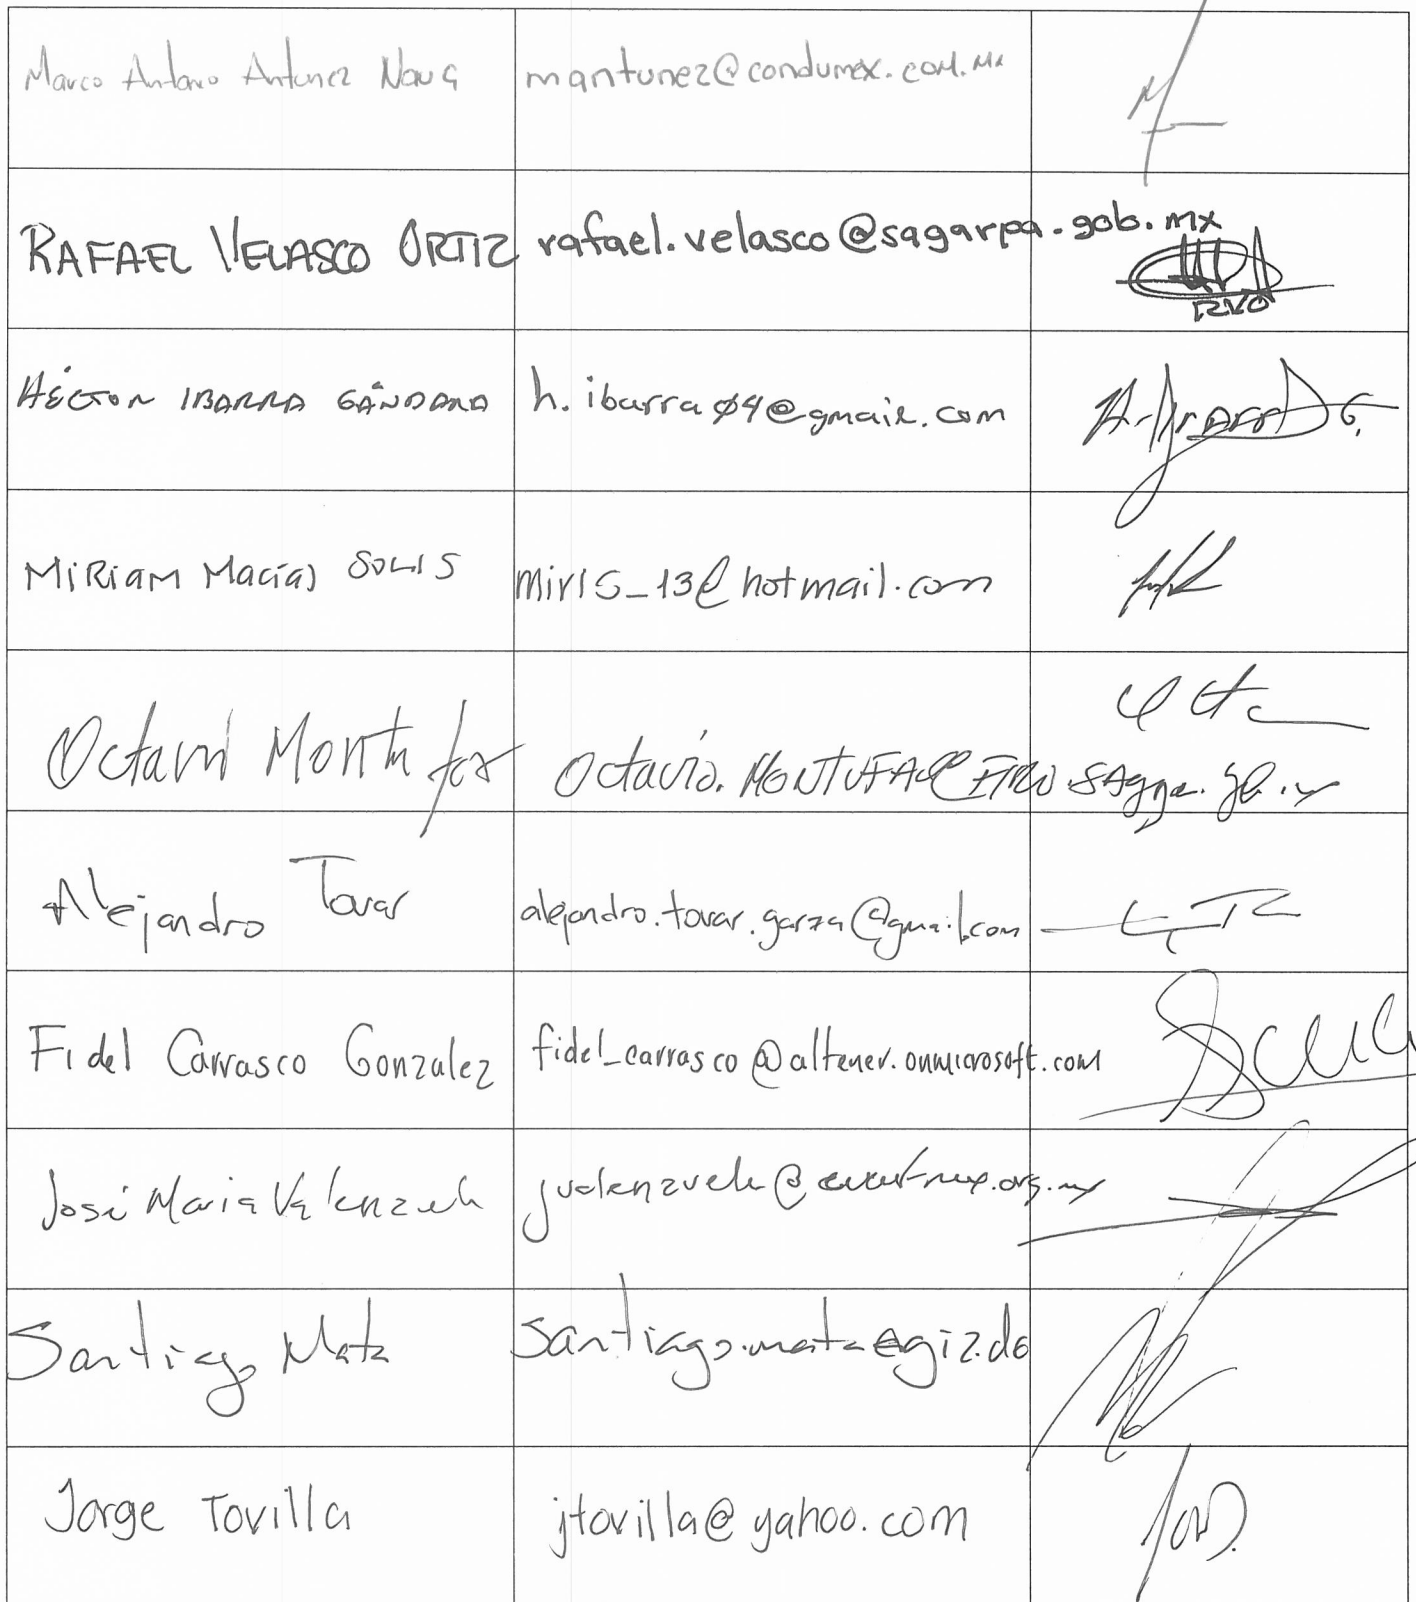 Marco Antonio Antunez Nava mantunez@condumex.com.mx
RAFAEL VELASCO ORTIZ rafael.velasco@sagarpa.gob.mx
RVO
HÉCTOR IBARRA GÁNDARA h.ibarra04@gmail.com
MIRIAM Macías SOLIS miris_13@hotmail.com
Octavio Montufar
Alejandro Tovar alejandro.tovar.garza@gmail.com
Fidel Carrasco Gonzalez fidel_carrasco@altener.onmicrosoft.com
José Maria Valenzuela
Santiago Mata santiago.mata@giz.de
Jorge Tovilla jtovilla@yahoo.com